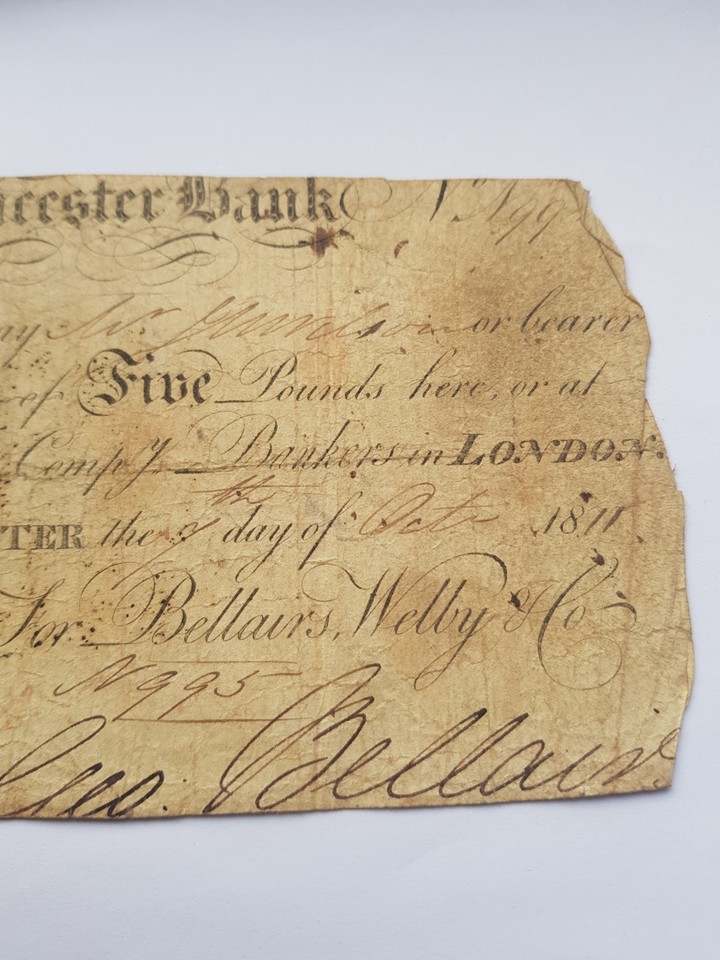 icester Bank No N995
ay Mr or bearer
of Five Pounds here, or at
Compy Bankers in LONDON.
TER the 7th day of Octr 1811
For Bellairs, Welby & Co
N 995
Geo. Bellairs